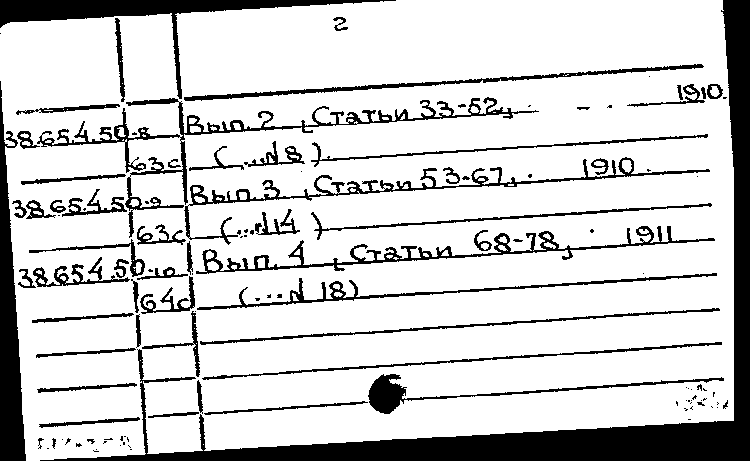 2
38.65.4.50-8 Вып. 2 [Статьи 33-52] . - . - 1910.
63с (...№ 8).
38.65.4.50-9 Вып. 3 [Статьи 53-67] . 1910.
63с (...№ 14)
38.65.4.50-10 Вып. 4 [Статьи 68-78] . 1911
64с (...№ 18)